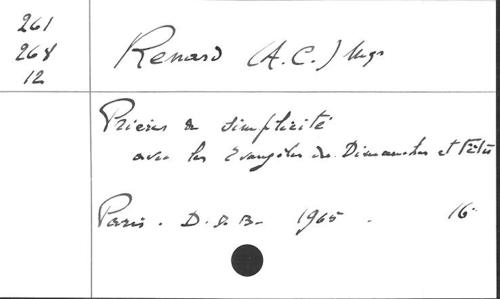 261
268
12
Renard (A.C.) Mgr
Prières de simplicité
avec les Evangiles des Dimanches et Fêtes
Paris. D.d.B. 1965. 16°